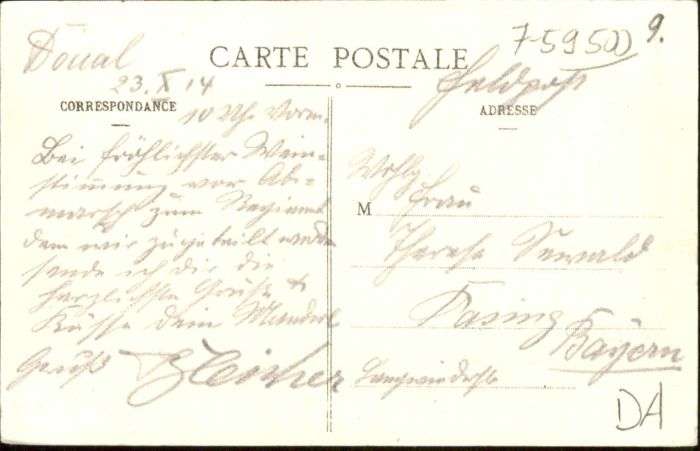 Douai
CARTE POSTALE
7-59500
9.
23. X 14
Feldpost
CORRESPONDANCE
10 Uhr Vorm.
ADRESSE
Bei fröhlichster Wein-
stimmung vor Ab-
marsch zum Regiment
dem wir zugeteilt werden
sende ich dir die
herzlichsten Grüße &
Küsse dein Manderl
Gruß
Wohlg.
M Frau
Therese Sewald
Pasing
Bayern
Langwiederstr
DA